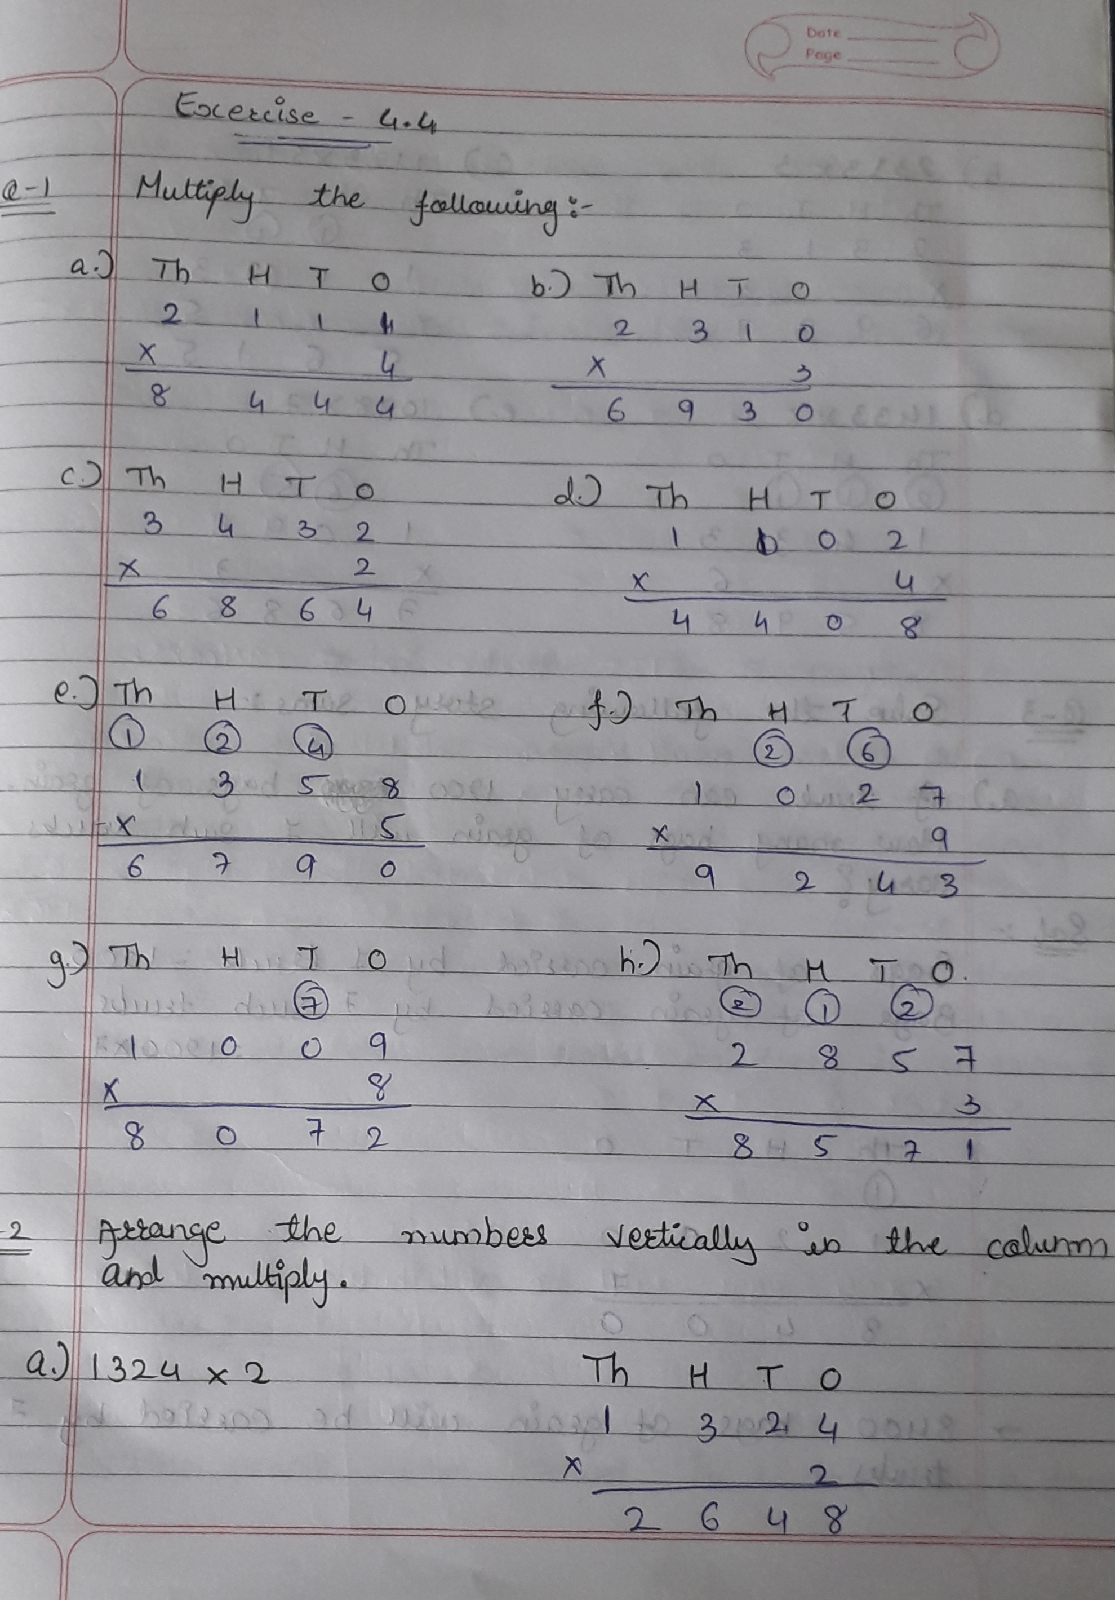 Date
Page
Excercise - 4.4
Q-1 Multiply the following:-
a.) Th H T O b.) Th H T O
2 1 1 1 2 3 1 0
x 4 x 3
8 4 4 4 6 9 3 0
c.) Th H T O d.) Th H T O
3 4 3 2 1 1 0 2
x 2 x 4
6 8 6 4 4 4 0 8
e.) Th H T O f.) Th H T O
1 2 4 2 6
1 3 5 8 1 0 2 7
x 5 x 9
6 7 9 0 9 2 4 3
g.) Th H T O h.) Th H T O.
7 2 1 2
1 0 0 9 2 8 5 7
x 8 x 3
8 0 7 2 8 5 7 1
-2 Arrange the numbers vertically in the column
and multiply.
a.) 1324 x 2 Th H T O
1 3 2 4
x 2
2 6 4 8